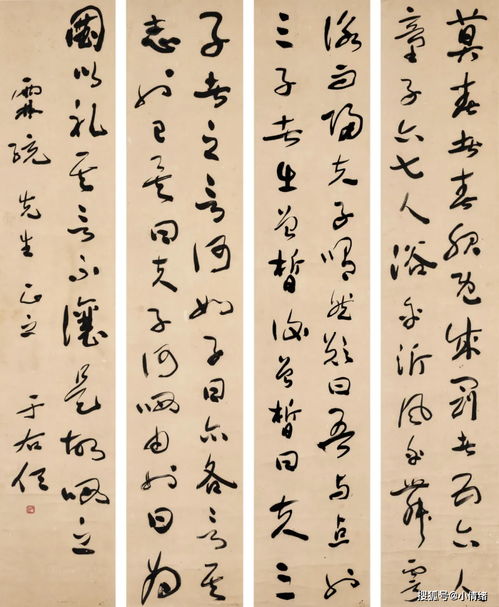 莫春者春服既成冠者五六人
童子六七人浴乎沂風乎舞雩
詠而歸夫子喟然歎曰吾与點也
三子者出曾皙後曾皙曰夫三
子者之言何如子曰亦各言其
志也已矣曰夫子何哂由也曰為
國以礼其言不讓是故哂之
霖 先生正之 于右任
搜狐号@小情绪